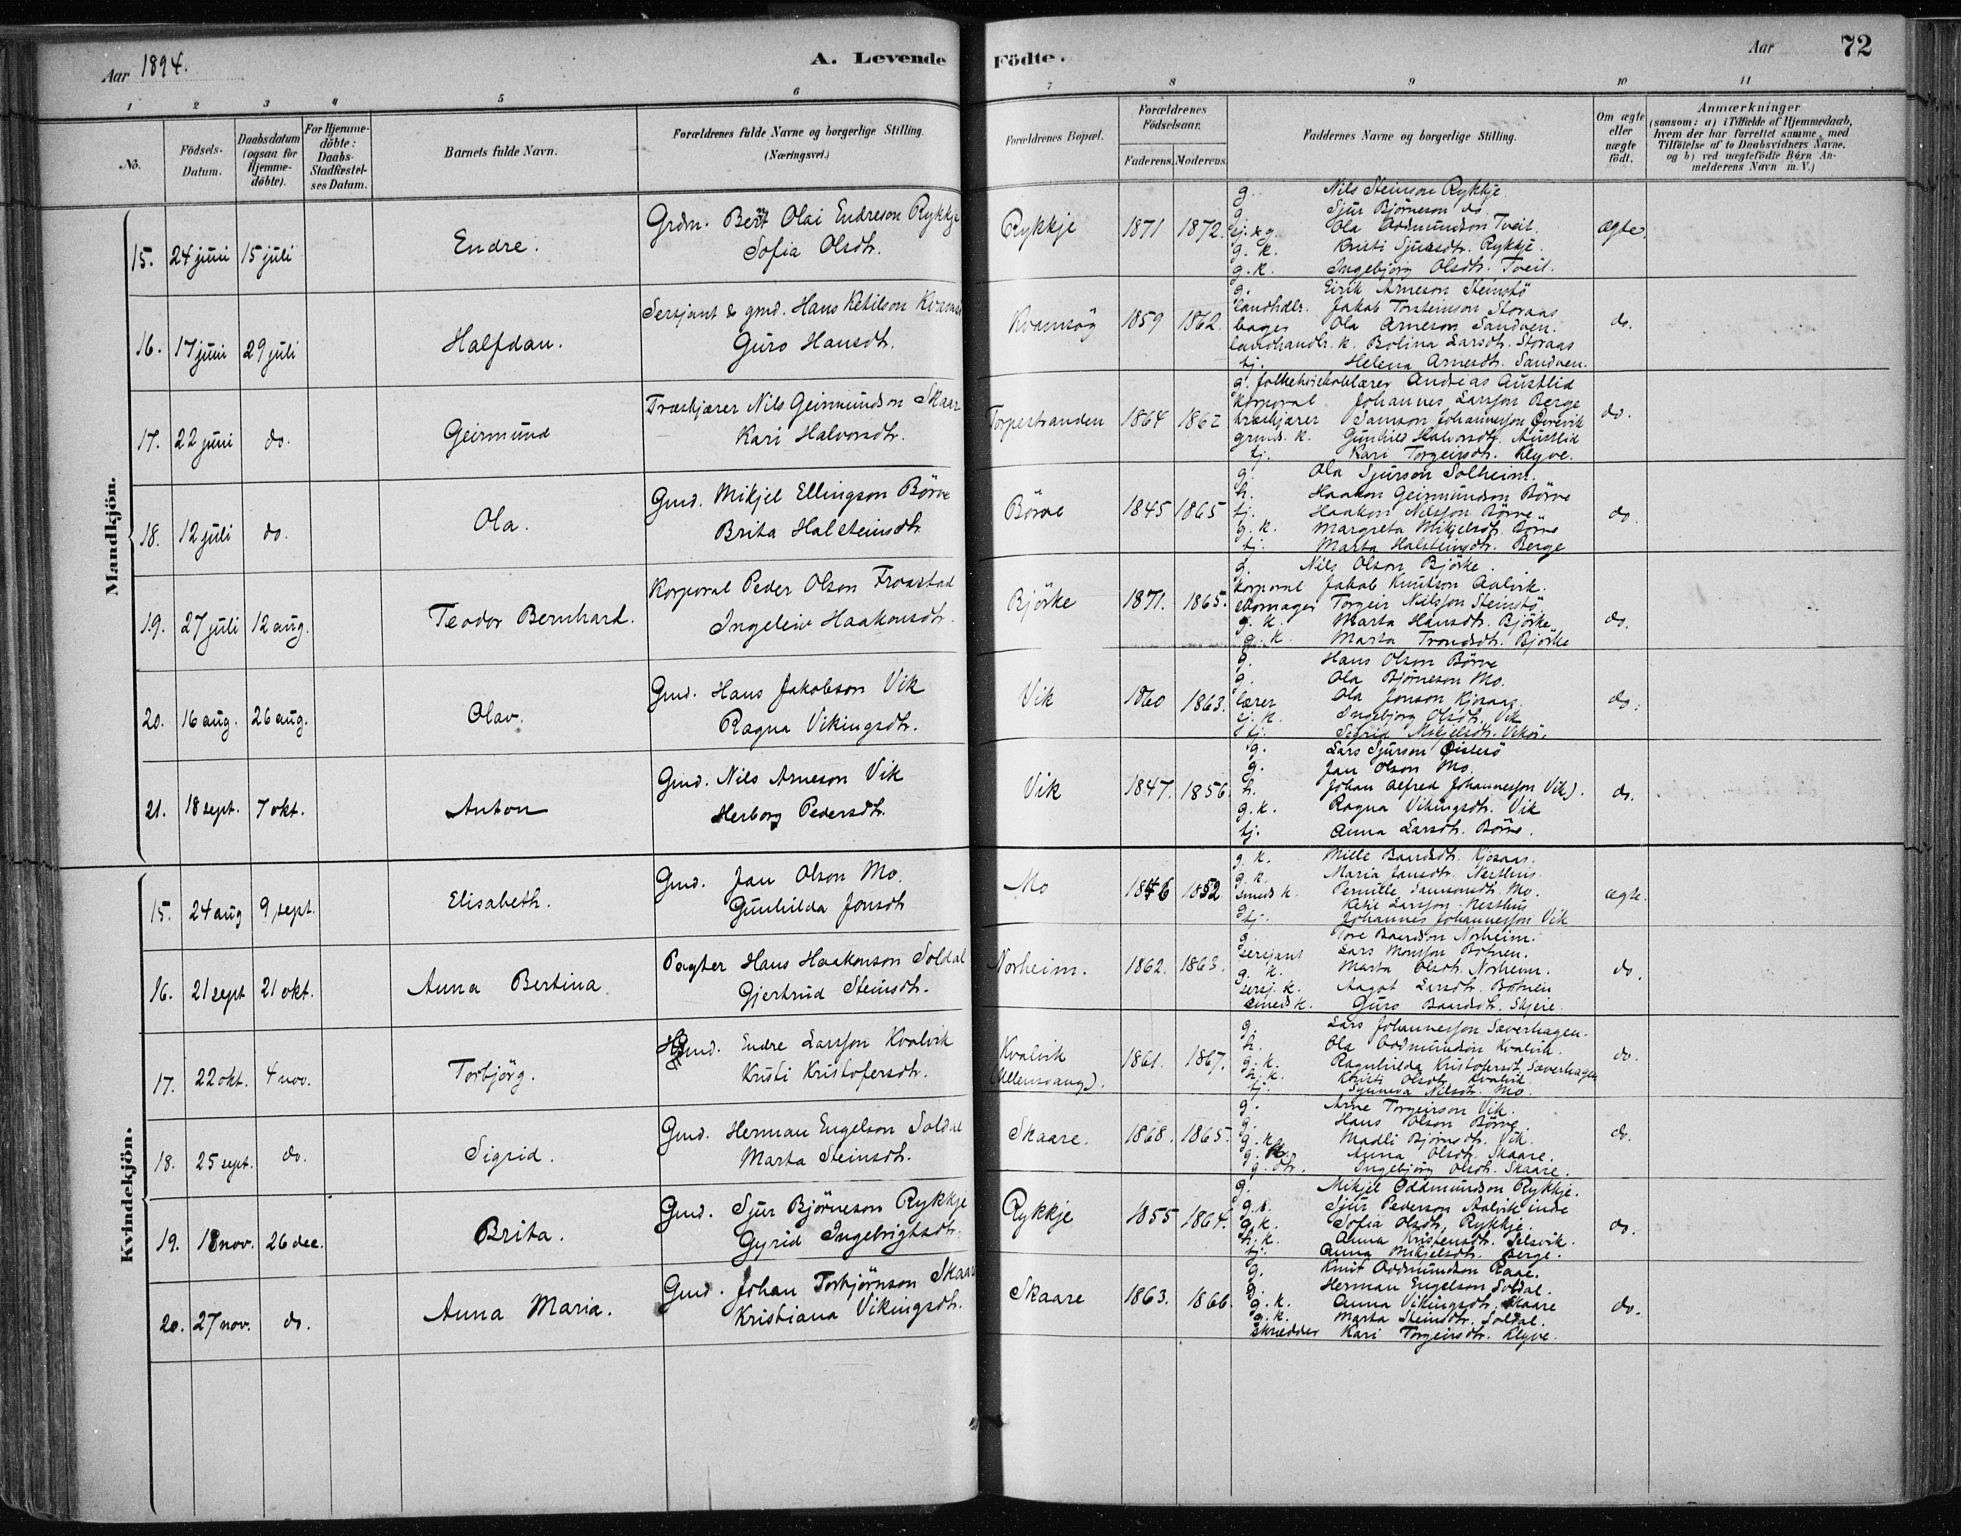 Aar 1894.
A. Levende Födte.
Aar
72
1 2 3 4 5 6 7 8 9 10 11
No.
Födsels-Datum.
Daabsdatum (ogsaa for Hjemme-döbte).
For Hjemme-döbte: Daabs-Stadfæstel-ses Datum.
Barnets fulde Navn.
Forældrenes fulde Navne og borgerlige Stilling. (Næringsvei.)
Forældrenes Bopæl.
Forældrenes Födselsaar.
Faderens. Moderens.
Faddernes Navne og borgerlige Stilling.
Om ægte eller uægte födt.
Anmærkninger
(saasom: a) i Tilfælde af Hjemmedaab,
hvem der har forrettet samme, med
Tilföielse af to Daabsvidners Navne,
og b) ved uægtefödte Börn An-
melderens Navn m. V.)
Mandkjön.
15. 24 juni 15 juli Endre. Grdm. Olai Endreson Rykkje
Sofia Olsdtr.
Rykkje 1871 1872. ægte.
g. Nils Steinson Rykkje
g. Sjur Björneson do
Ola Oddmundson Tveit.
g. k. Kristi Sjursdtr. Rykkje.
g. k. Ingebjörg Olsdtr. Tveit.
16. 17 juni 29 juli Halfdan. Sersjant & gmd. Hans Ketilson
Guro Hansdtr.
Kvamsög 1859 1862. do.
g. Eirik Arneson Steinstö
landhdlr. Jakob Torsteinson Storaas
bager Ola Arneson Sandven.
landhandlr. k. Bolina Larsdtr. Storaas
tj. Helena Arnesdtr. Sandven.
17. 22 juni do. Geirmund Træskjærer Nils Geirmundson Skaar
Kari Halvorsdtr.
Torpestranden 1864 1862 do.
g. folkehöiskolelærer Andreas Austlid
korporal Johannes Larsson Berge
træskjærer Samson Johannesson
grmd. k. Gunhild Halvorsdtr. Austlid
tj. Kari Torgeirsdtr. Klyve.
18. 12 juli do. Ola. Gmd. Mikjel Ellingson Börve
Brita Halsteinsdtr.
Börve 1845 1865 do.
g. Ola Sjurson Solheim.
h. Haakon Geirmundson Börve
tj. Haakon Nilsson Börve
g. k. Margreta Mikjelsdtr. Börve
tj. Marta Halsteinsdtr. Berge
19. 27 juli 12 aug. Teodor Bernhard. Korporal Peder Olson Froastad
Ingeleiv Haakonsdtr.
Björke 1871. 1865. do.
g. Nils Olson Björke.
korporal Jakob Knutson Aalvik.
skomager Torgeir Nilsson Steinstö
g. k. Marta Hansdtr. Björke
g. k. Marta Trondsdtr. Björke
20. 16 aug. 26 aug. Olav. Gmd. Hans Jakobson Vik
Ragna Vikingsdtr.
Vik 1860 1863. do.
g. Hans Olson Börve
g. Ola Björneson Mo.
lærer Ola Jonson Kjosaas
Ingebjörg Olsdtr. Vik
tj. Sigrid Mikjelsdtr. Vikör.
21. 18 sept. 7 okt. Anton Gmd. Nils Arneson Vik
Herborg Pedersdtr.
Vik 1847. 1856. do.
g. Lars Sjurson Öistesö
g. Jan Olson Mo.
h. Johan Alfred Johannesson Vik).
g. k. Ragna Vikingsdtr. Vik
tj. Anna Larsdtr. Börve.
Kvindekjön.
15. 24 aug 9 sept. Elisabeth. Gmd. Jan Olson Mo.
Gunhilda Jonsdtr
Mo 1846 1852 ægte.
g. k. Mille Baardsdtr. Kjosaas.
g. k. Maria Jansdtr. Nesthus.
smed k. Pernille Samsonsdtr. Mo.
g. Ketil Larsson Nesthus
tj. Johannes Johannesson Vik
16. 21 sept 21 okt. Anna Bertina Pagter Hans Haakonson Soldal
Gjertrud Steinsdtr.
Norheim. 1862. 1863. do.
g. Tore Baardson Norheim.
sersjant Lars Monsson Botnen.
g. k. Marta Olsdtr. Norheim.
sersj. k. Aagot Larsdtr. Botnen
smed k. Guro Baardsdtr. Skjeie.
17. 22 okt. 4 nov. Torbjörg. Hgmd. Endre Larsson Kvalvik
Kristi Kristofersdtr.
Kvalvik (Ullensvang). 1861. 1867. do.
g. Lars Johannesson Saverhagen.
h. Ola Oddmundson Kvalvik.
g. k. Ragnhilda Kristofersdt. Saverhagen
h. k. Kristi Olsdtr. Kvalvik.
tj. Synneva Nilsdtr. Mo.
18. 25 sept. do. Sigrid. Gmd. Herman Engelson Soldal
Marta Steinsdtr.
Skaare. 1868. 1865. do.
g. Arne Torgeirson Vik.
g. Hans Olson Börve.
g. k. Madli Björnsdtr. Vik.
g. k. Anna Olsdtr. Skaare.
g. dtr. Ingebjörg Olsdtr. Skaare.
19. 18 nov. 26 dec. Brita. Gmd. Sjur Björneson Rykkje
Gyrid Ingebrigtsdtr.
Rykkje 1855 1864. do.
g. Mikjel Oddmundson Rykkje.
g. s. Sjur Pederson Aalvik indre
g. k. Sofia Olsdtr. Rykkje.
h. k. Anna Kristensdtr. Selsvik.
tj. Anna Mikjelsdtr. Berge.
20. 27 nov. do. Anna Maria. Gmd. Johan Torbjörnson Skaar
Kristiana Vikingsdtr.
Skaare 1863. 1866. do.
g. Knut Oddmundson Raae.
g. Herman Engelson Soldal.
g. k. Anna Vikingsdtr. Skaare
g. k. Marta Steinsdtr. Soldal.
skrædder Kari Torgeirsdtr. Klyve.